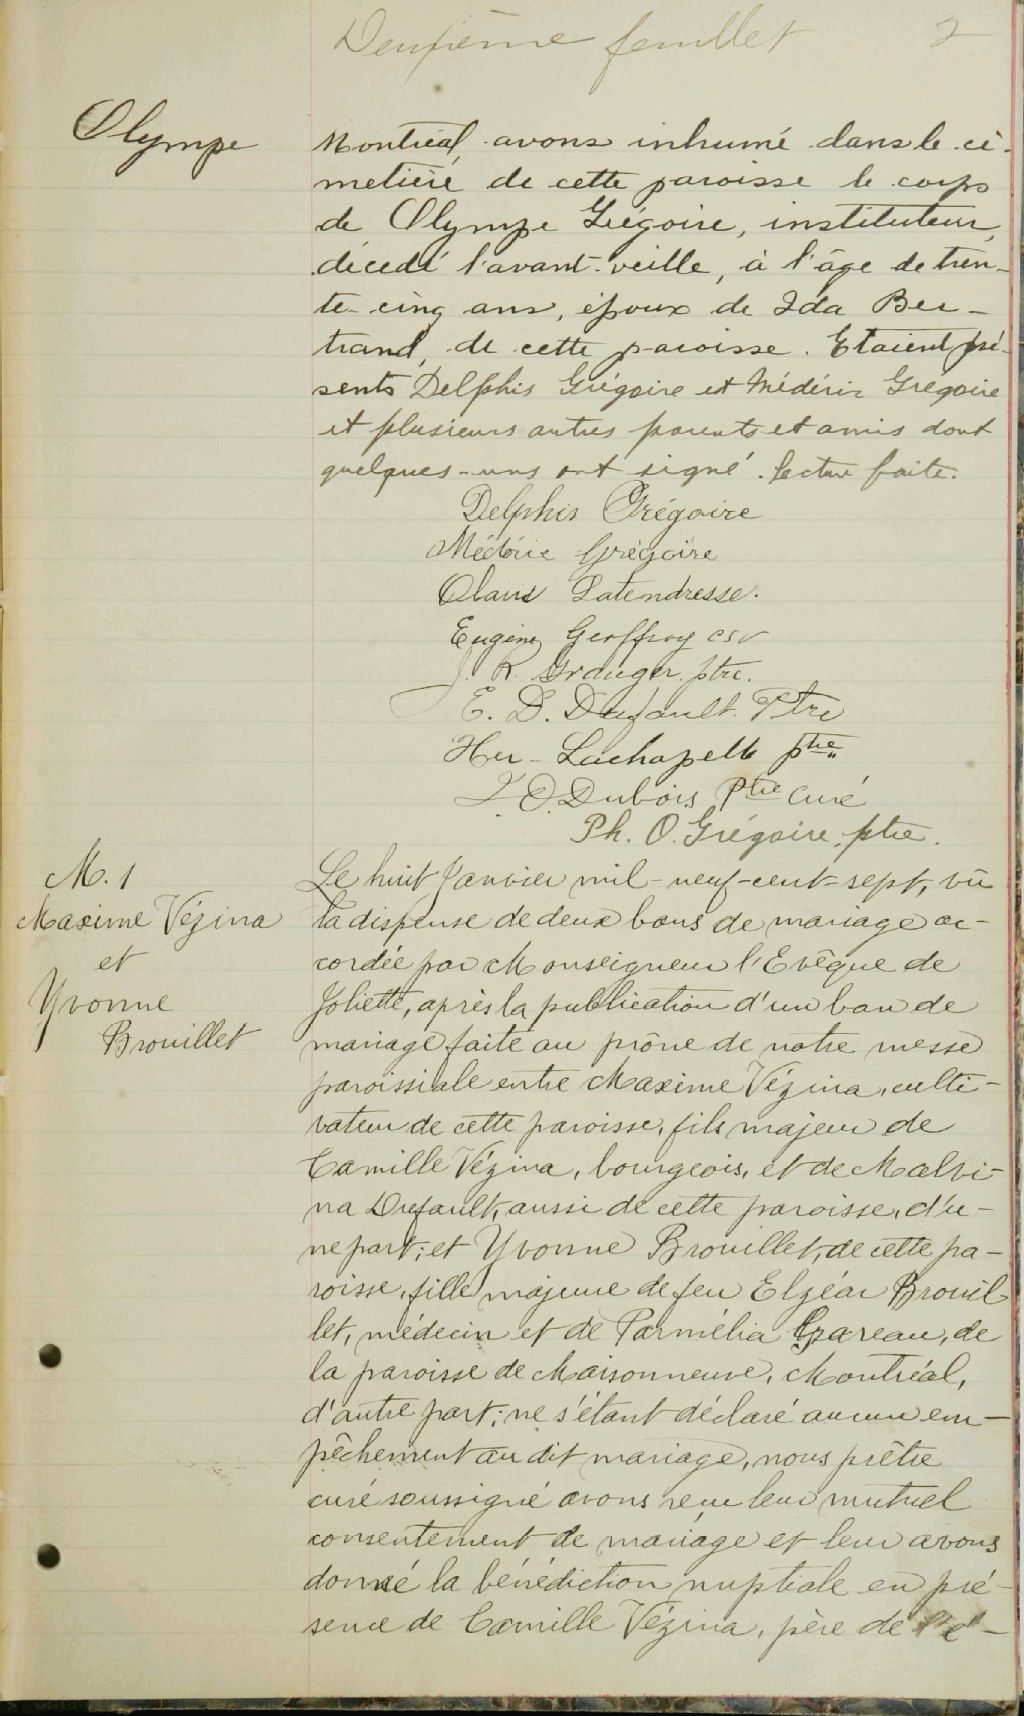 Deuxième feuillet 2
Olympe
Montréal, avons inhumé dans le ci-
metière de cette paroisse le corps
de Olympe Grégoire, instituteur,
décédé l'avant-veille, à l'âge de tren-
te-cinq ans, époux de Ida Ber-
trand, de cette paroisse. Etaient pré-
sents Delphis Grégoire et Médéric Grégoire
et plusieurs autres parents et amis dont
quelques-uns ont signé. Lecture faite.
Delphis Grégoire
Médéric Grégoire
Latendresse.
Eugène Geoffroy csv
J. R. Granger ptre.
E. D. Dufault. Ptre
Her- Lachapelle ptre
J. O. Dubois Ptre Curé
Ph. O. Grégoire, ptre.
M. 1
Maxime Vézina
et
Yvonne
Brouillet
Le huit Janvier mil-neuf-cent-sept, vu
la dispense de deux bans de mariage ac-
cordée par Monseigneur l'Evêque de
Joliette, après la publication d'un ban de
mariage faite au prône de notre messe
paroissiale entre Maxime Vézina, culti-
vateur de cette paroisse, fils majeur de
Camille Vézina, bourgeois, et de Malvi-
na Dufault, aussi de cette paroisse, d'u-
ne part; et Yvonne Brouillet, de cette pa-
roisse, fille majeure de feu Elzéar Brouil-
let, médecin et de Parmélia Gareau, de
la paroisse de Maisonneuve, Montréal,
d'autre part; ne s'étant déclaré aucun em-
pêchement au dit mariage, nous prêtre
curé soussigné avons reçu leur mutuel
consentement de mariage et leur avons
donné la bénédiction nuptiale en pré-
sence de Camille Vézina, père de l'é-